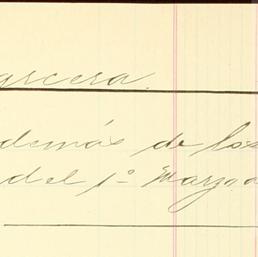 arcera.
demás de los
del 1º Marzo a